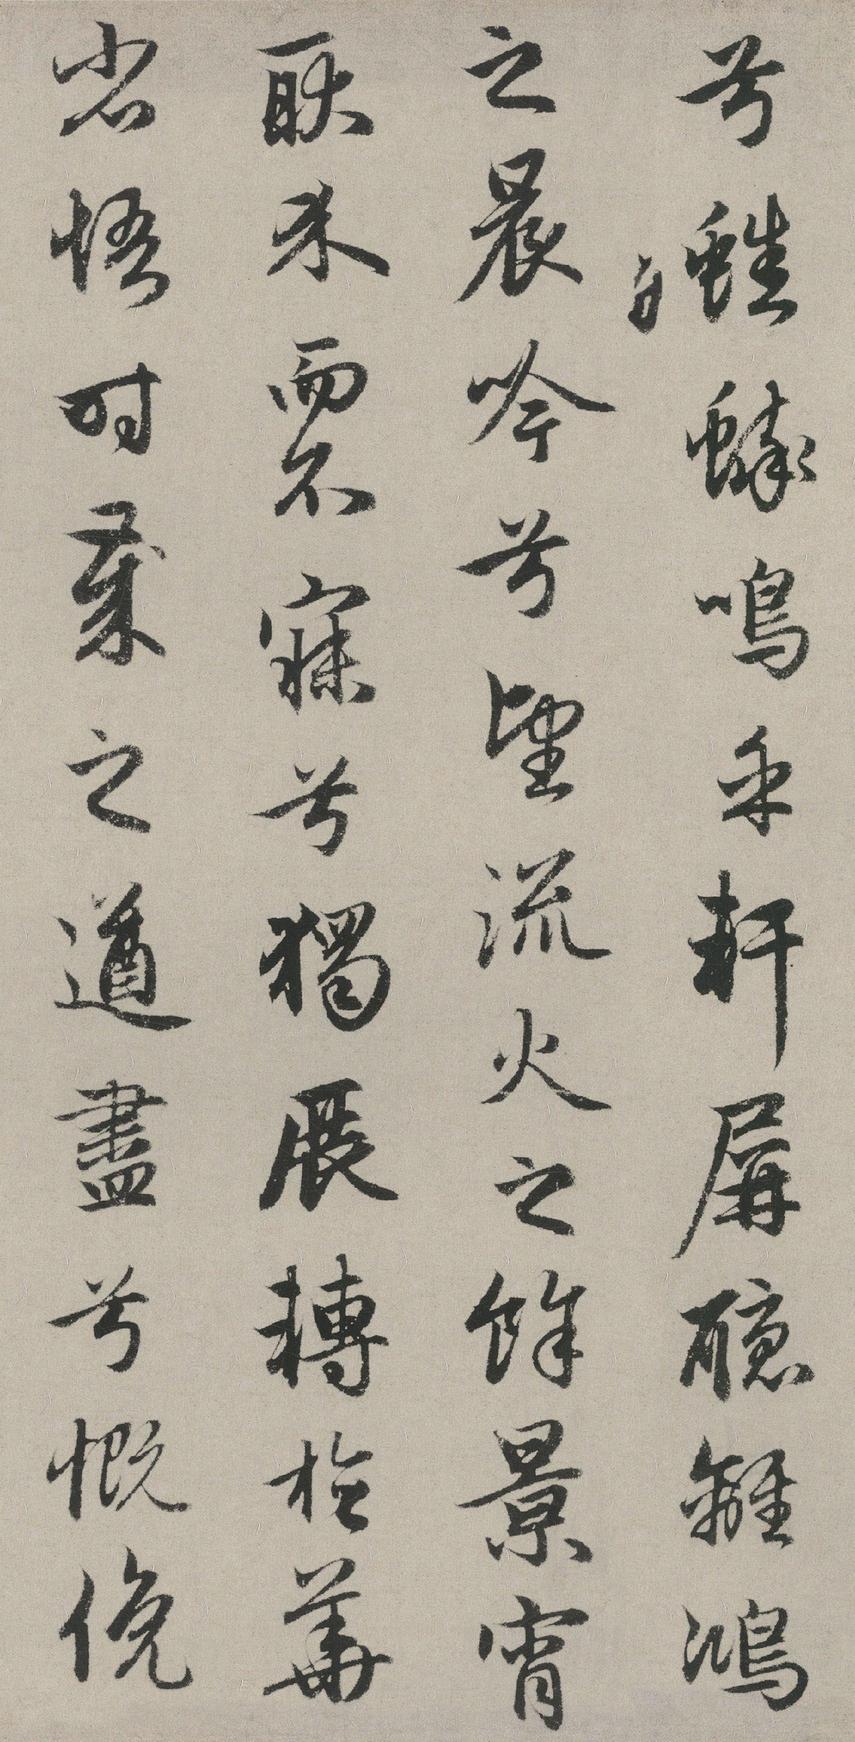 兮蟋蟀鳴乎軒屏聽離鴻
之晨吟兮望流火之餘景宵
耿介而不寐兮獨展轉於華
省悟时歲之遒盡兮慨俛